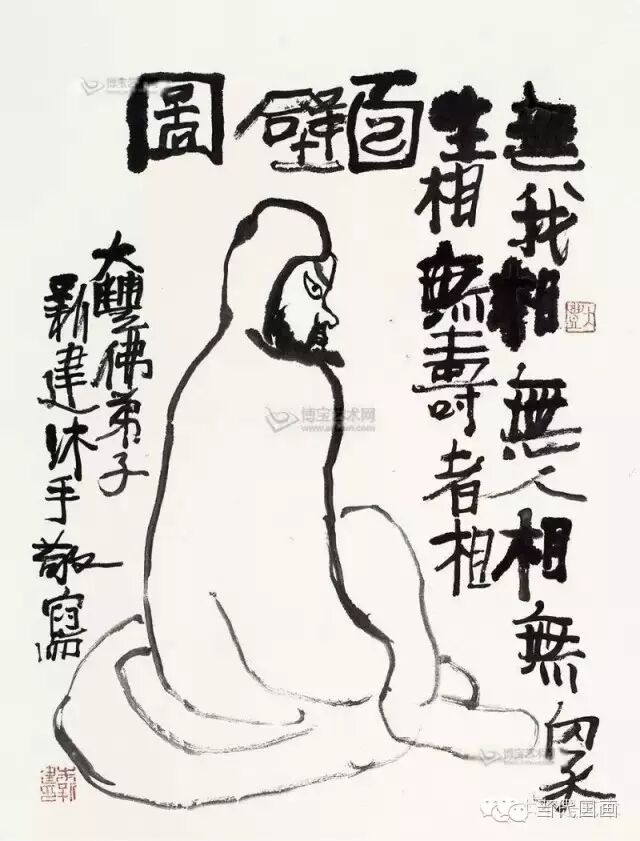 無我相無人相無眾
生相無壽者相
面壁圖
大豐佛弟子
新建沐手敬寫
博宝艺术网
当代国画